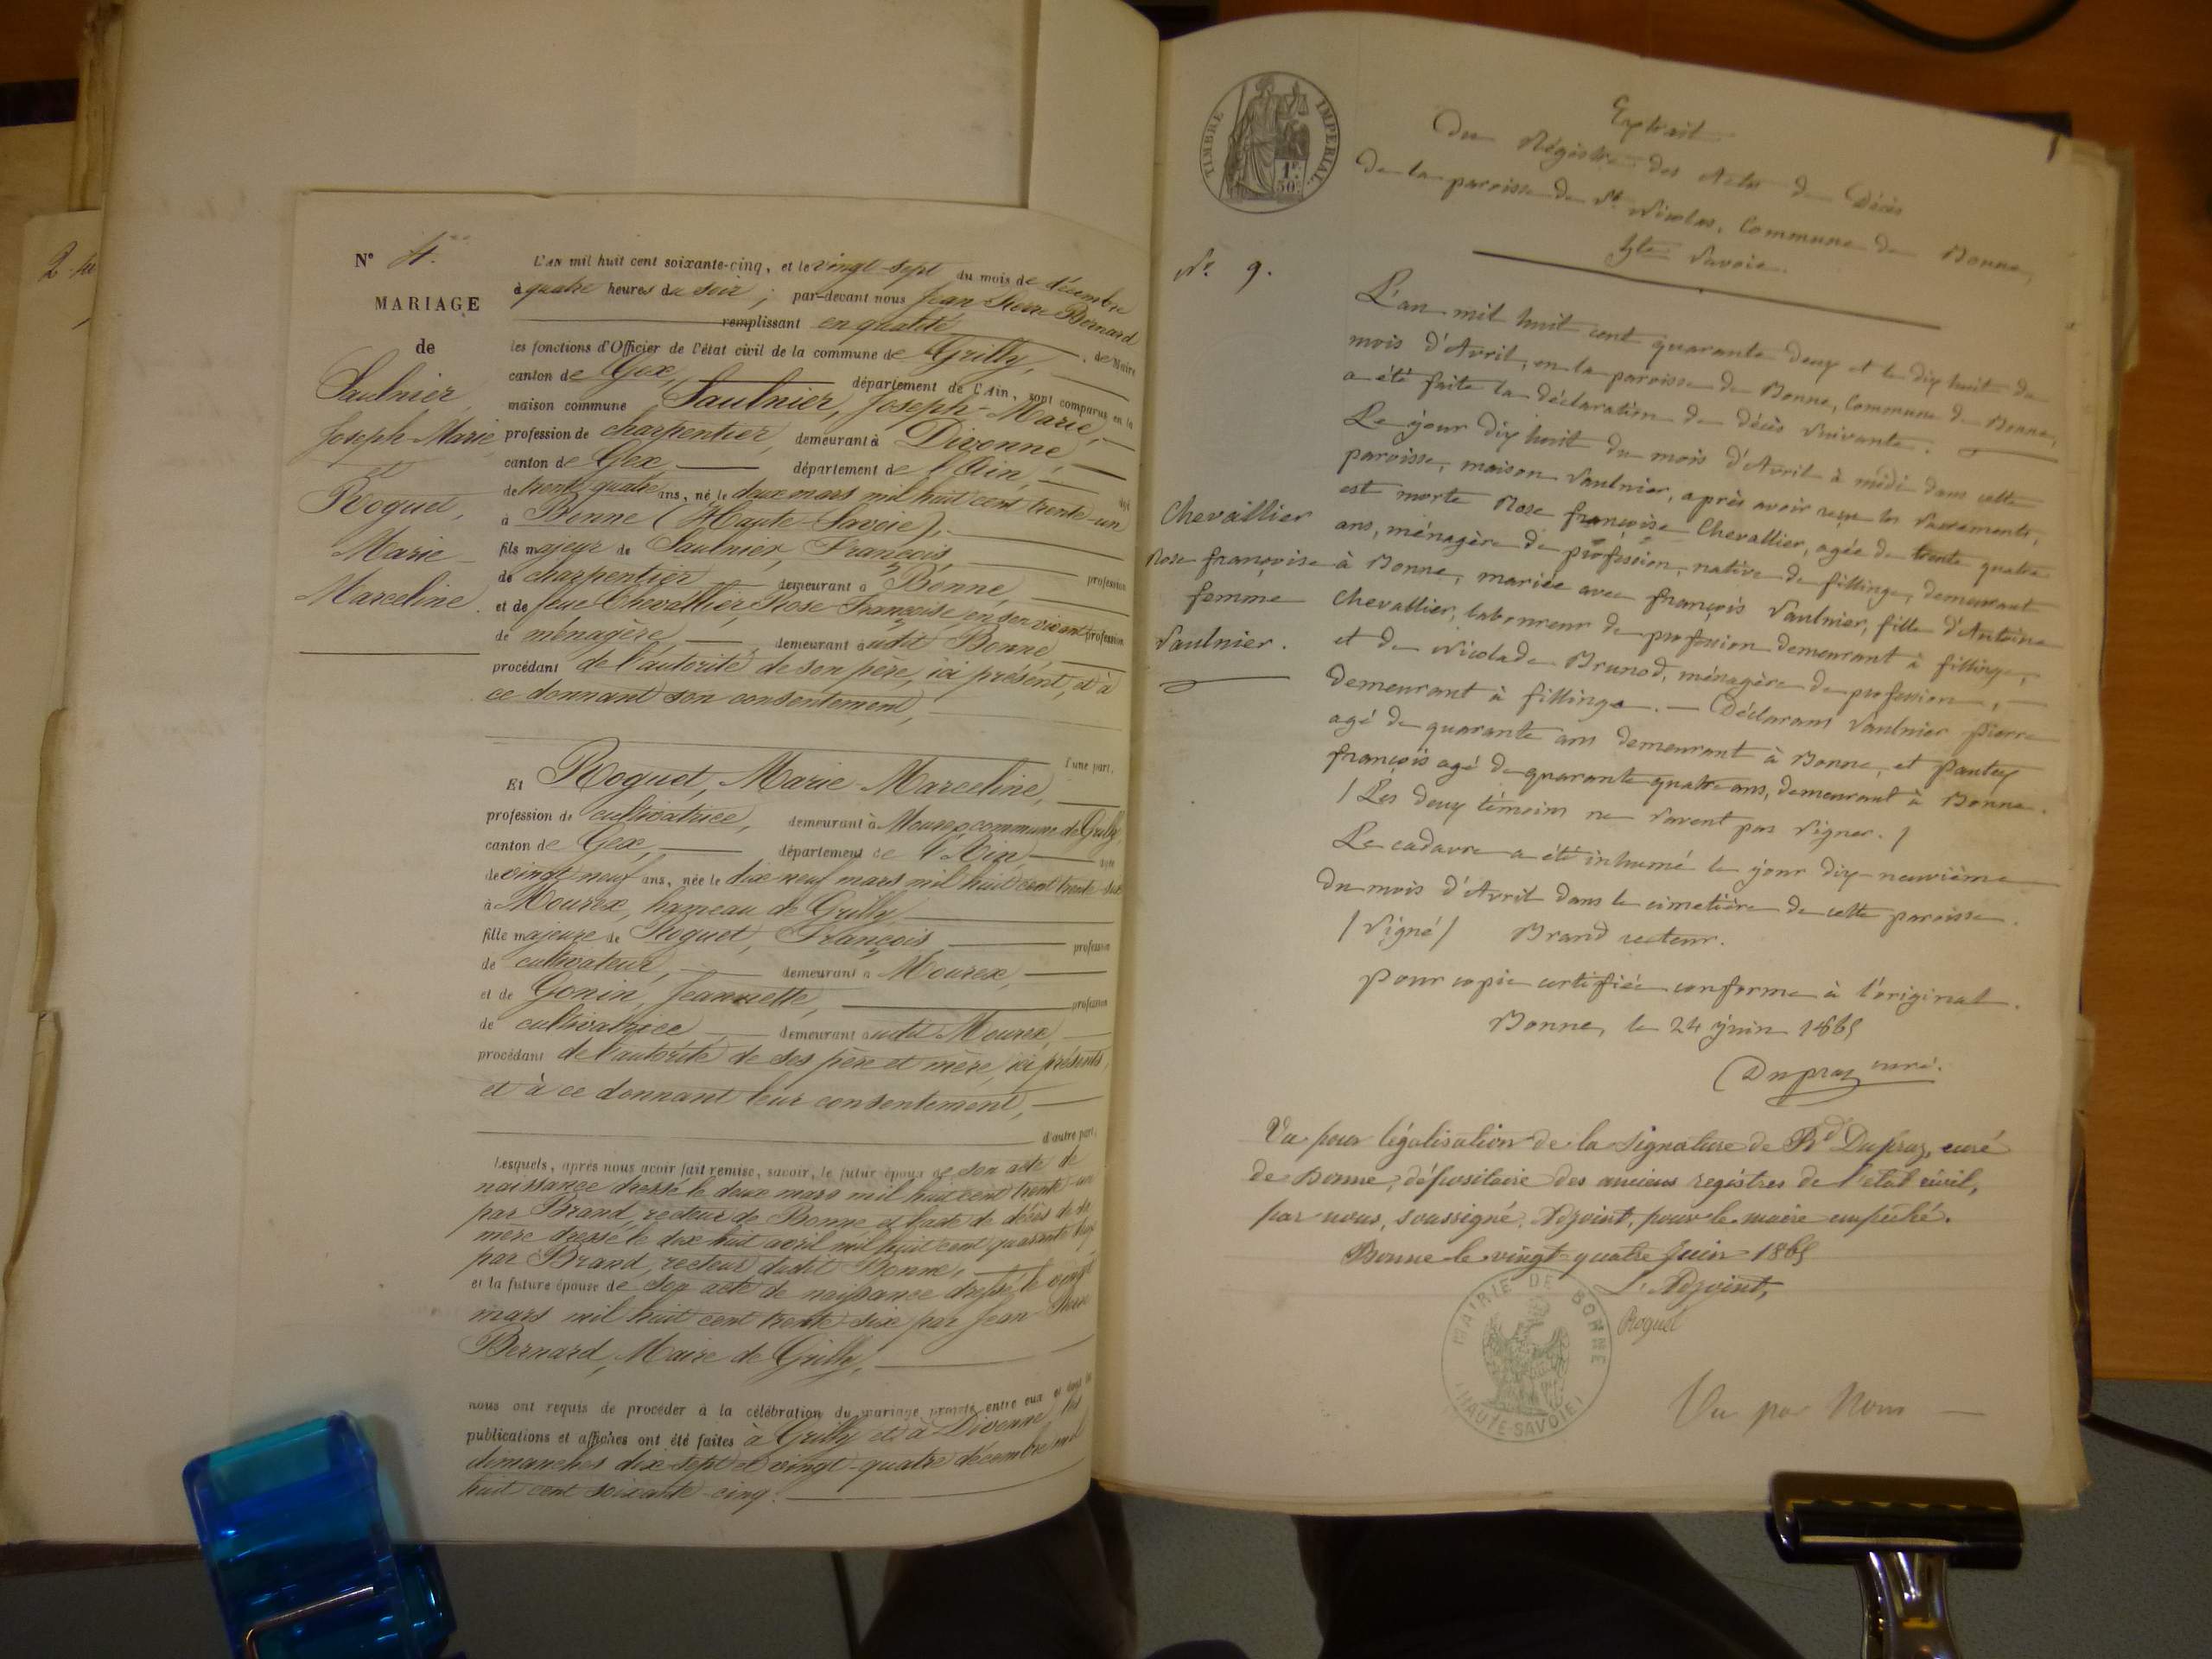 2
N° 4.
MARIAGE
de
Saulnier,
Joseph-Marie,
et
Roguet,
Marie
Marceline.
L'an mil huit cent soixante-cinq, et le vingt-sept du mois de décembre
à quatre heures du soir ; par-devant nous Jean Pierre Bernard
remplissant en qualité de Maire
les fonctions d'Officier de l'état civil de la commune de Grilly,
canton de Gex, département de l'Ain, sont comparus en la
maison commune Saulnier, Joseph-Marie,
profession de charpentier, demeurant à Divonne,
canton de Gex, département de l'Ain, âgé
de trente quatre ans, né le deux mars mil huit cent trente-un
à Bonne (Haute-Savoie),
fils majeur de Saulnier, François, profession
de charpentier demeurant à Bonne,
et de feue Chevallier, Rose Françoise, en son vivant profession
de ménagère, demeurant audit Bonne
procédant de l'autorité de son père, ici présent, et à
ce donnant son consentement,
d'une part.
Et Roguet, Marie Marceline,
profession de cultivatrice, demeurant à Mourex commune de Grilly,
canton de Gex, département de l'Ain âgée
de vingt neuf ans, née le dix neuf mars mil huit cent trente-six
à Mourex, hameau de Grilly
fille majeure de Roguet, François, profession
de cultivateur, demeurant à Mourex,
et de Gonin, Jeannette, profession
de cultivatrice demeurant audit Mourex,
procédant de l'autorité de ses père et mère, ici présents,
et à ce donnant leur consentement,
d'autre part.
Lesquels, après nous avoir fait remise, savoir, le futur époux de son acte de
naissance dressé le deux mars mil huit cent trente-un
par Brand, recteur de Bonne et l'acte de décès de sa
mère dressé le dix huit avril mil huit cent quarante deux
par Brand, recteur dudit Bonne,
et la future épouse de son acte de naissance dressé le vingt
mars mil huit cent trente-six par Jean Pierre
Bernard, Maire de Grilly,
nous ont requis de procéder à la célébration du mariage projeté entre eux et dont les
publications et affiches ont été faites à Grilly et à Divonne, les
dimanches dix-sept et vingt-quatre décembre mil
huit cent soixante-cinq.
TIMBRE IMPERIAL
1F.
50c.
Extrait
Du Régistre des Actes de Décès
De la paroisse de St Nicolas, Commune de Bonne,
Hte Savoie.
N° 9.
Chevallier
Rose françoise
femme
Saulnier.
L'an mil huit cent quarante deux et le dix huit du
mois d'Avril, en la paroisse de Bonne, Commune de Bonne,
a été faite la déclaration de décès suivante.
Le jour dix huit du mois d'Avril à midi dans cette
paroisse, maison Saulnier, après avoir reçu les Sacrements,
est morte Rose françoise Chevallier, agée de trente quatre
ans, ménagère de profession, native de fillinge, demeurant
à Bonne, mariée avec françois Saulnier, fille d'Antoine
Chevallier, laboureur de profession demeurant à fillinge,
et de Nicolade Brunod, ménagère de profession,
demeurant à fillinge. — Déclarant Saulnier pierre
agé de quarante ans demeurant à Bonne, et pantex
françois agé de quarante quatre ans, demeurant à Bonne.
/ Les deux témoins ne savent pas signer. /
Le cadavre a été inhumé le jour dix-neuvième
du mois d'Avril dans le cimetière de cette paroisse.
/ Signé / Brand recteur.
pour copie certifiée conforme à l'original.
Bonne, le 24 juin 1865
Dupraz curé.
Vu pour légalisation de la Signature de Rd Dupraz, curé
de Bonne, dépositaire des anciens registres de l'état civil,
par nous, soussigné, Adjoint, pour le maire empêché.
Bonne le vingt-quatre Juin 1865
L'Adjoint,
Roguet
MAIRIE DE BONNE
(HAUTE-SAVOIE)
Vu par Nous